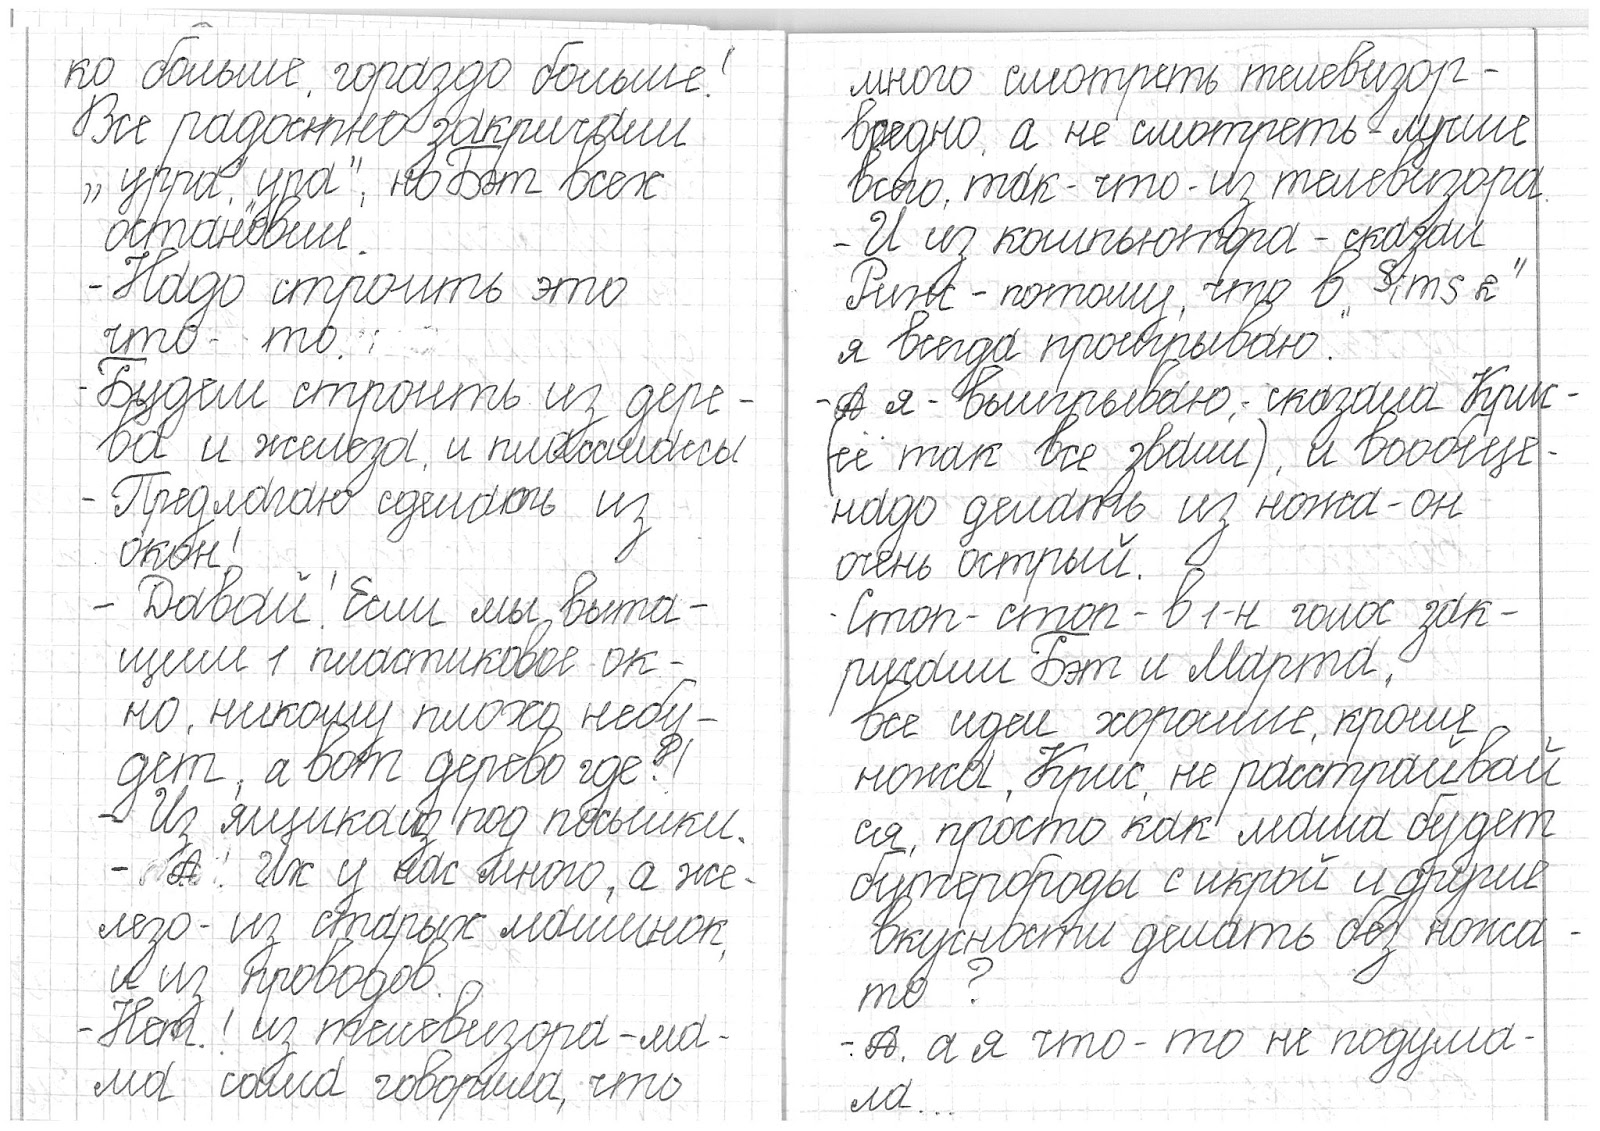 ко больше, гораздо больше!
Все радостно закричали
„урра", "ура", но Бэт всех
остановил.
- Надо строить это
что- то.
- Будем строить из дере-
ва и железа, и пластмассы
- Предлагаю сделать из
окон!
- Давай! Если мы выта-
щим 1 пластиковое ок-
но, никому плохо небу-
дет, а вот дерево где?!
- Из ящиков из под посылки.
- А! Их у нас много, а же-
лезо- из старых машинок,
и из проводов.
- Нет! из телевизора-ма-
ма сама говорила, что
много смотреть телевизор-
вредно, а не смотреть-лучше
всего, так-что-из телевизора.
- И из компьютора - сказал
Рикс - потому, что в „Sims 2"
я всегда проигрываю.
- А я - выигрываю,- сказала Крис-
(её так все звали), и вообще-
надо делать из ножа-он
очень острый.
- Стоп- стоп - в 1-н голос зак-
ричали Бэт и Марта,
все идеи хорошие, кроме
ножа, Крис, не расстрайвай
ся, просто как мама будет
бутерброды с икрой и другие
вкусности делать без ножа-
то ?
- А, а я что-то не подума-
ла...